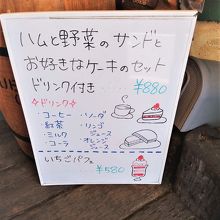 ハムと野菜のサンドと
お好きなケーキのセット
ドリンク付き ¥880
✧ドリンク✧
・コーヒー ・ソーダ
・紅茶 ・リンゴジュース
・ミルク ・オレンジジュース
・コーラ
いちごパフェ
¥580